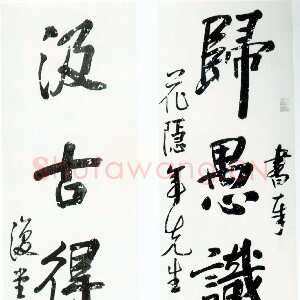 書奉
歸愚識
花隱年先生
汲古得
復堂